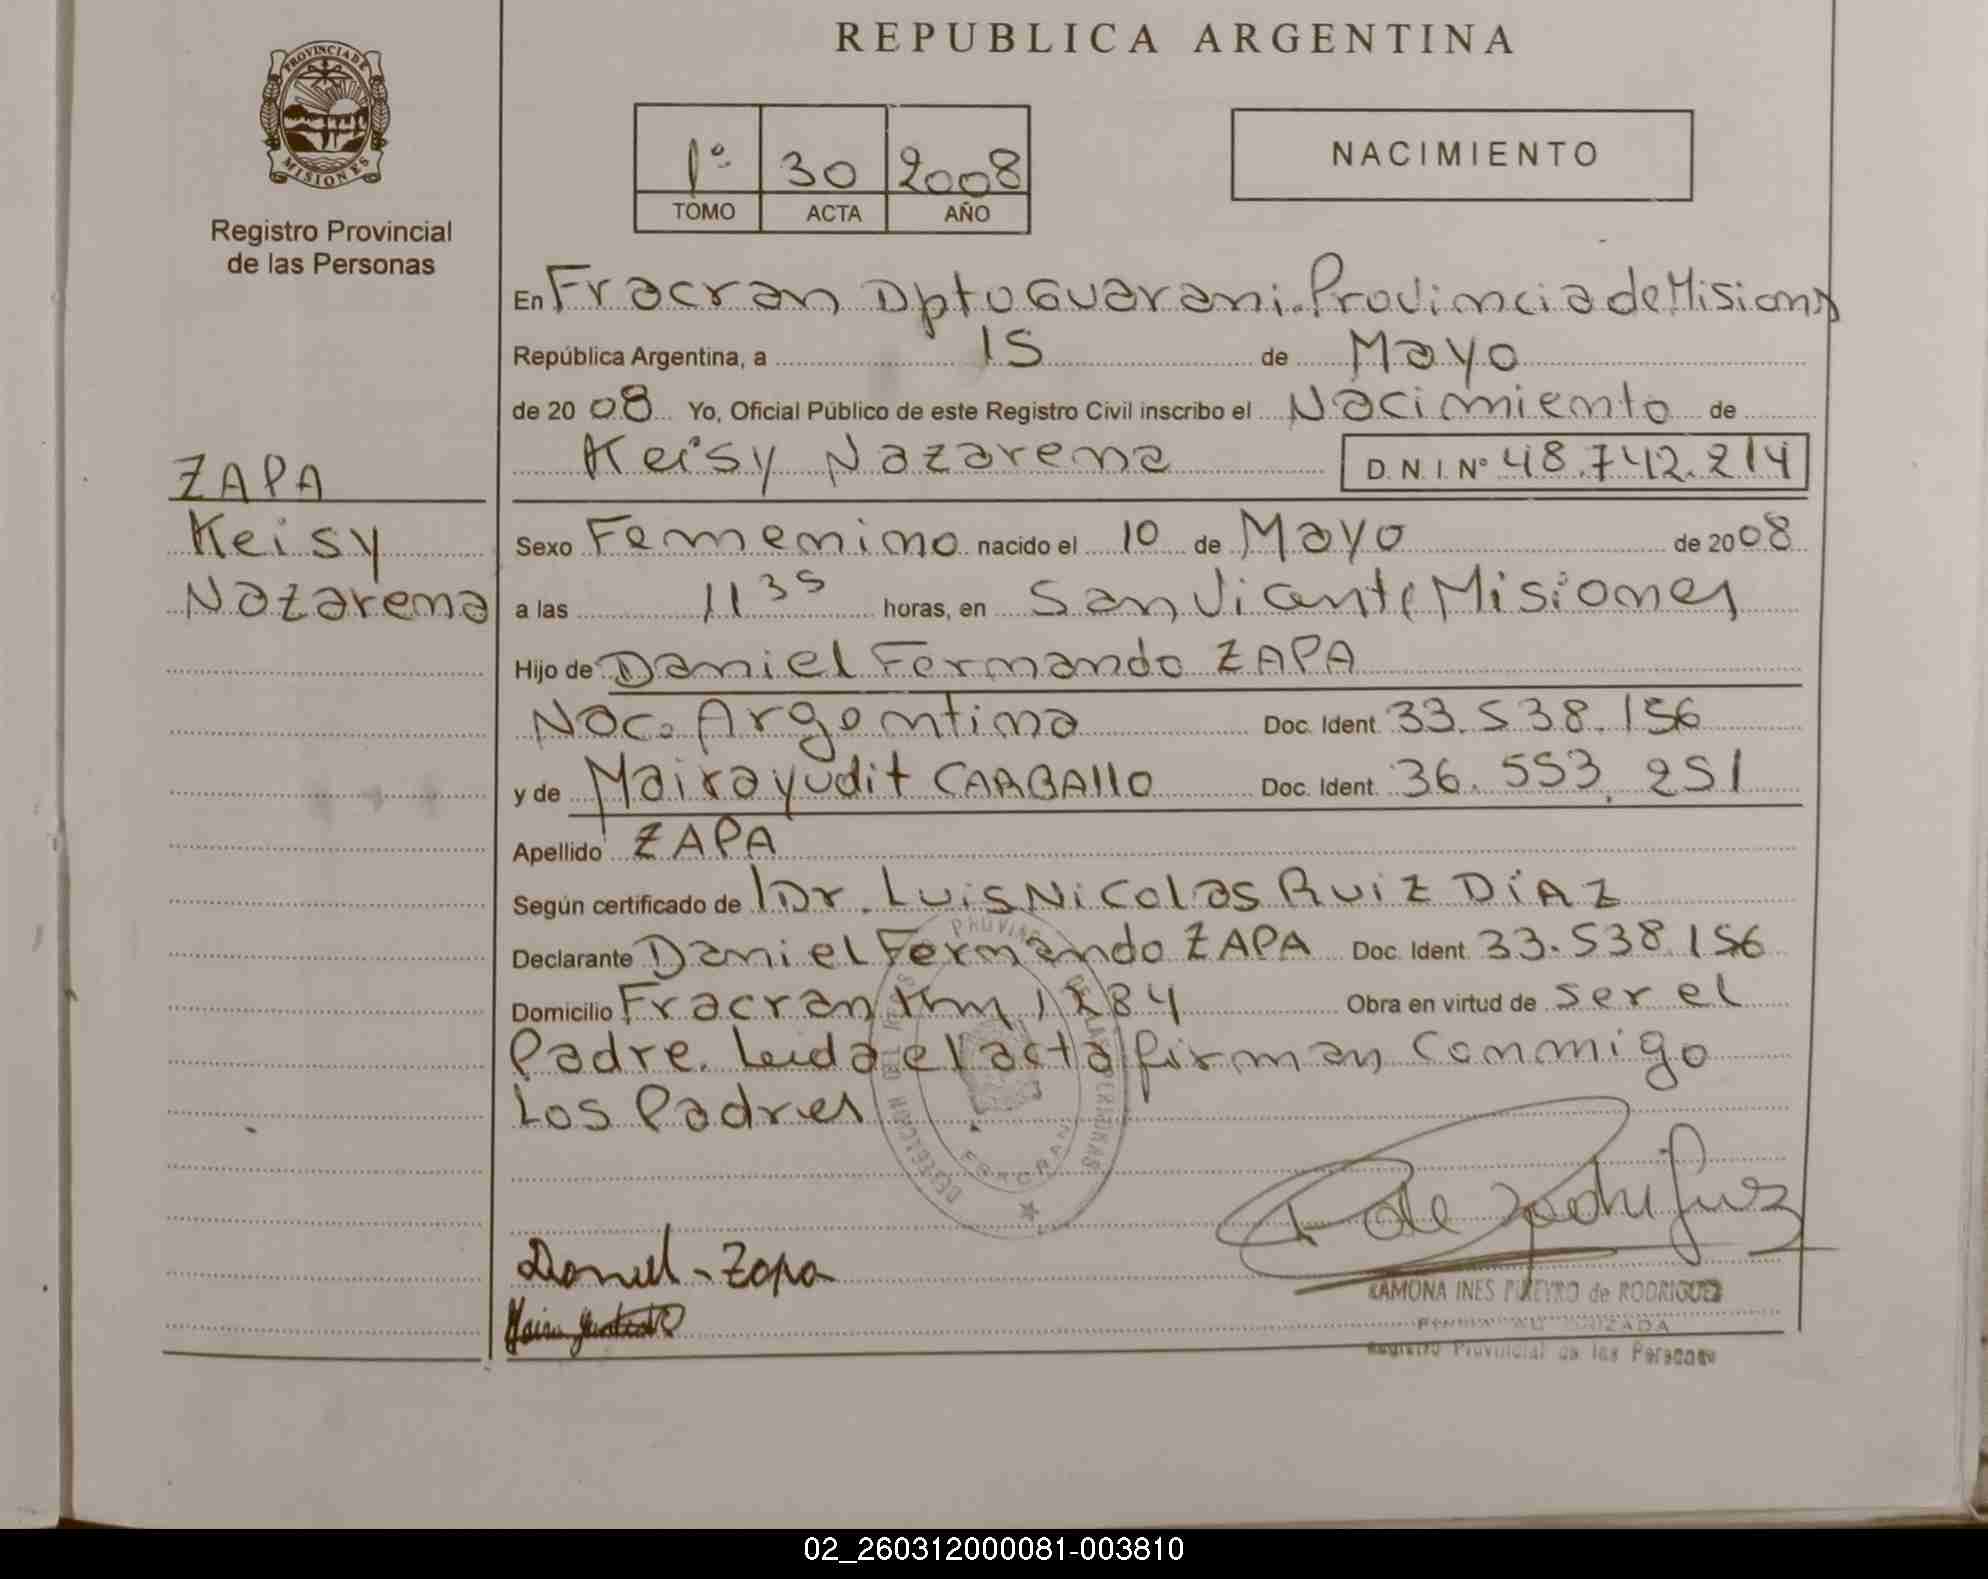 REPUBLICA ARGENTINA
PROVINCIA DE
MISIONES
Registro Provincial
de las Personas
1º 30 2008
TOMO ACTA AÑO
NACIMIENTO
En Fracran Dpto Guarani. Provincia de Misiones
República Argentina, a 15 de Mayo
de 20 08 Yo, Oficial Público de este Registro Civil inscribo el Nacimiento de
Keisy Nazarena D.N.I. Nº 48.742.214
ZAPA
Keisy
Nazarena
Sexo Femenino nacido el 10 de Mayo de 20 08
a las 11 35 horas, en San Vicente Misiones
Hijo de Daniel Fernando ZAPA
Nac. Argentina Doc. Ident. 33.538.156
y de Maira yudit CARBAllO Doc. Ident. 36.553.251
Apellido ZAPA
Según certificado de Dr. Luis Nicolas Ruiz DíAZ
Declarante Daniel Fernando ZAPA Doc. Ident. 33.538.156
Domicilio Fracran Km 1284 Obra en virtud de ser el
Padre. Leida el acta firman Conmigo
Los Padres
DELEGACION DEL REG. PROVINCIAL DE LAS PERSONAS
FRACRAN
Daniel - Zapa
R de Rodriguez
RAMONA INES PIÑEYRO de RODRIGUEZ
FIRMA AUTORIZADA
Registro Provincial de las Personas
02_260312000081-003810